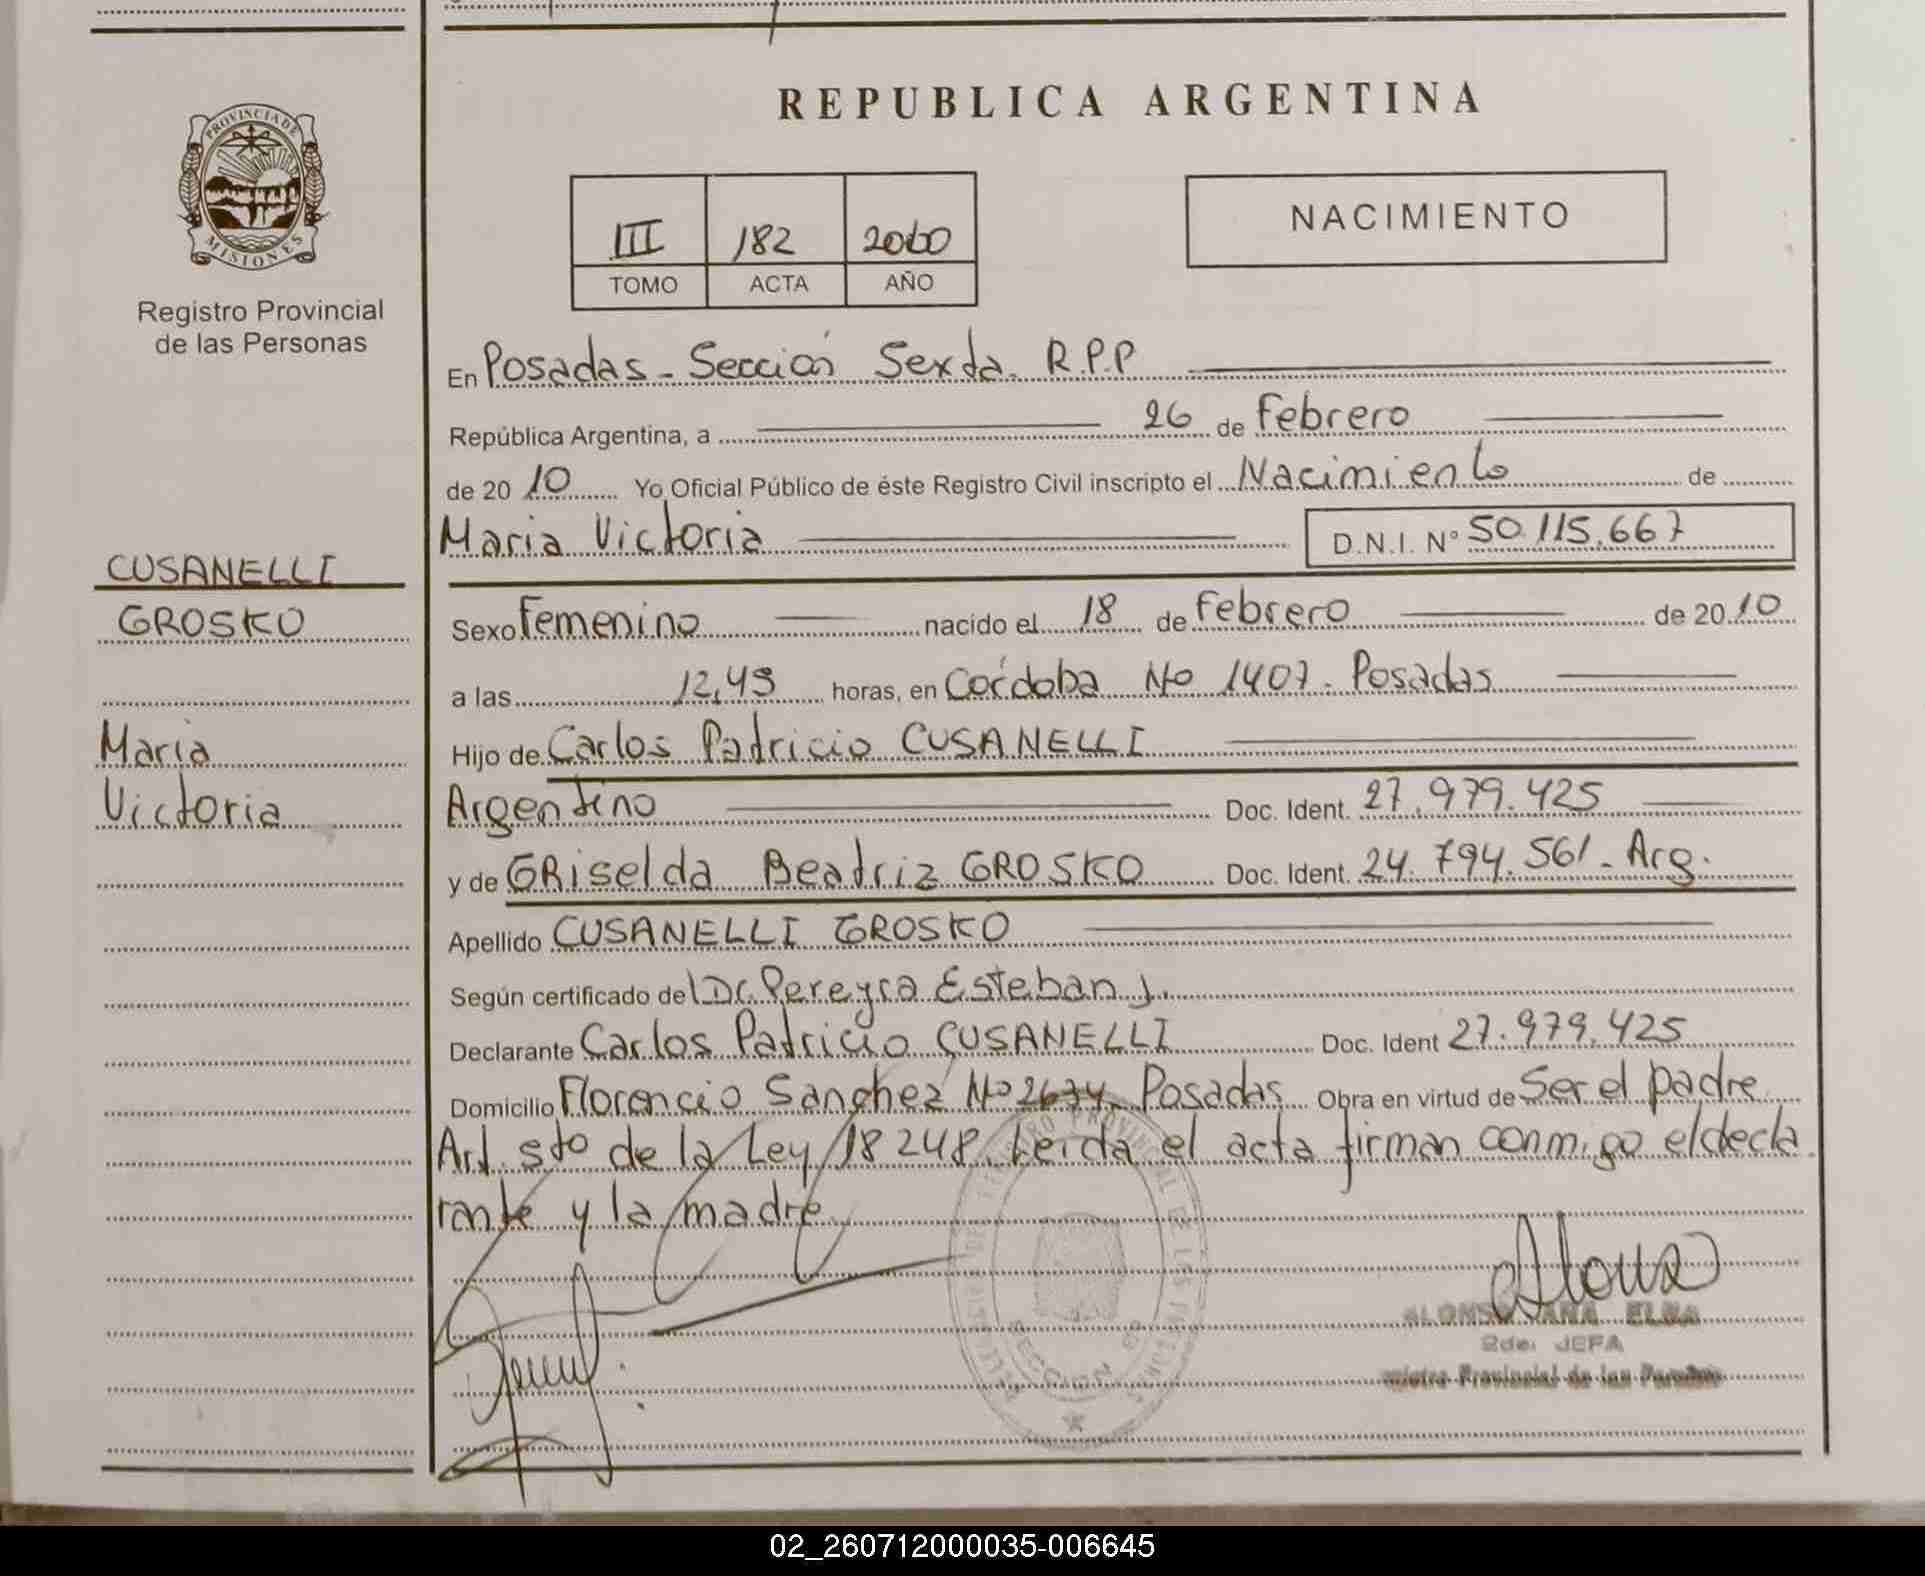 REPUBLICA ARGENTINA
PROVINCIA DE
MISIONES
Registro Provincial
de las Personas
III 182
TOMO ACTA AÑO
NACIMIENTO
En Posadas - Sección Sexta. R.P.P
República Argentina, a 26 de Febrero
de 20 10 Yo Oficial Público de éste Registro Civil inscripto el Nacimiento de
Maria Victoria D.N.I. Nº 50.115.667
CUSANELLI
GROSKO
Maria
Victoria
Sexo Femenino nacido el 18 de Febrero de 20 10
a las horas, en Córdoba No 1407 - Posadas
Hijo de Carlos Patricio CUSANELLI
Argentino Doc. Ident. 27.979.425
y de GRiselda Beatriz GROSKO Doc. Ident. 24.794.561 - Arg.
Apellido CUSANELLI GROSKO
Según certificado del Dr. Pereyra Esteban J.
Declarante Carlos Patricio CUSANELLI Doc. Ident 27.979.425
Domicilio Florencio Sanchez No Posadas Obra en virtud de Ser el padre
Art. 5to de la Ley 18248. Leida el acta firman conmigo el decla
rante y la madre
ALONSO ANA ELBA
2da. JEFA
Provincial de las
SECCION
02_260712000035-006645